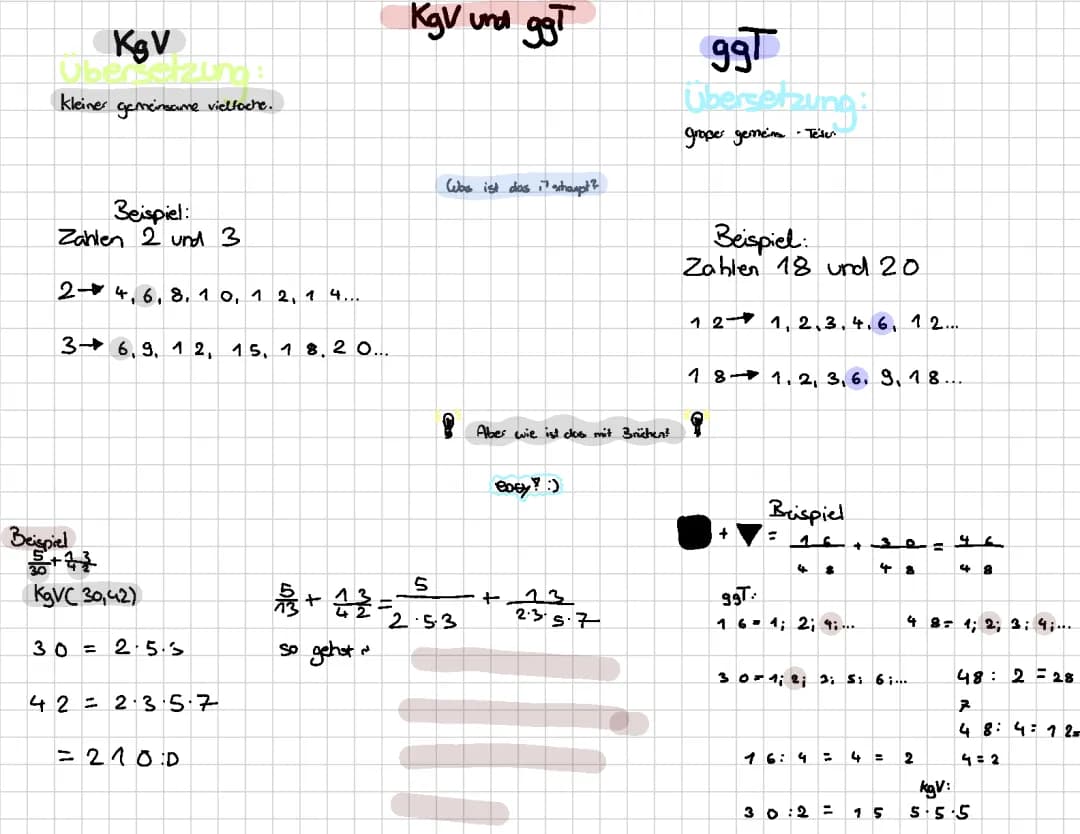 KgV und ggT
KgV
Übersetzung:
kleiner gemeinsame vielfache.
ggT
Übersetzung:
großer gemein - Teiler
Was ist das
Beispiel:
Zahlen 2 und 3
2→ 4, 6, 8, 10, 12, 14...
3→ 6, 9, 12, 15, 18, 20...
Beispiel:
Zahlen 18 und 20
12→ 1, 2, 3, 4, 6, 12...
18→ 1, 2, 3, 6, 9, 18...
Aber wie ist das mit Brüchen?
easy? :)
Beispiel
5/30 + 13/42
KgV( 30,42)
30 = 2·5·3
42 = 2·3·5·7
= 210 :D
5/13 + 13/42 = 5/2·5·3 + 13/2·3·5·7
so geht
Beispiel
+ = 16/48 + 30/48 = 46/48
ggT:
16= 1; 2; 4;... 48= 1; 2; 3; 4;...
30=1; 2; 3; 5; 6;... 48: 2 = 28
7
48: 4= 12=
16: 4 = 4 = 2 4=2
kgV:
30:2 = 15 5·5·5